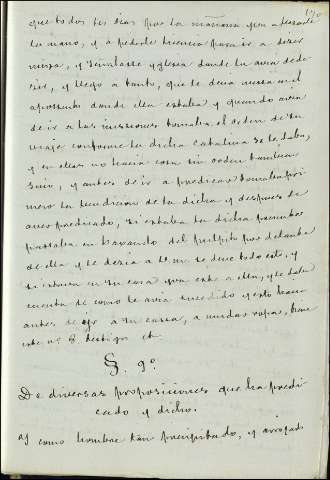 que todos los dias por la mañana yva a besarle
la mano, y a pedirle licencia para ir a dezir
misa, y señalasse yglesia donde la avia de de-
zir, y llego a tanto, que le dezia missa en el
aposento donde ella estaba y quando avia
de ir a las missiones tomaba el orden de su
viaje conforme la dicha Catalina se lo daba,
y en ellas no hacia cosa sin orden tambien
suio, y antes de ir a predicar tomaba pri-
mero la bendicion de la dicha y despues de
aver predicado, si estaba la dicha presente
passaba en baxando del pulpito por delante
de ella y le dezia a Vm. se deve todo esto, y
si estava en su casa yva este a ella, y le daba
cuenta de como le avia sucedido y esto hacia
antes de ir a su cassa, a mudar ropas,
este nº 8 testigos et.
§. 9º.
De diversas proposiciones que ha predi-
cado y dicho.
as como hombre tan precipitado, y arrojado